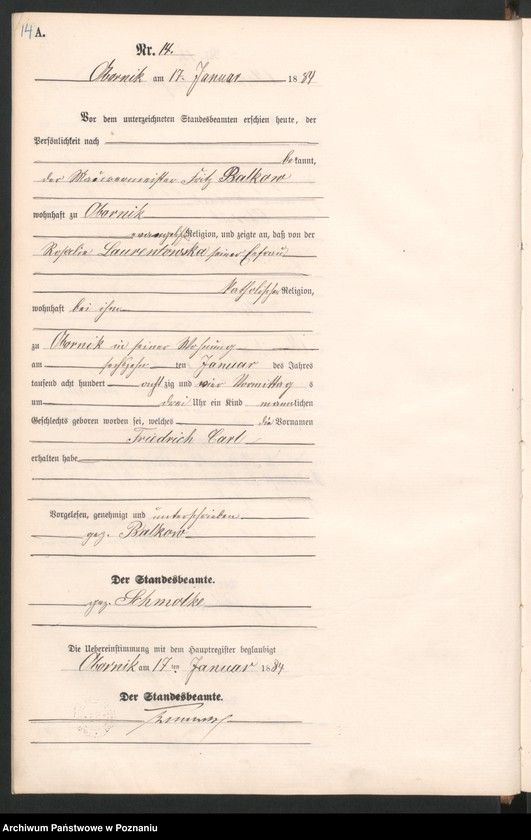 14 A.
Nr. 14.
Obornik am 17. Januar 1884
Vor dem unterzeichneten Standesbeamten erschien heute, der
Persönlichkeit nach
bekannt,
der Maurermeister Fritz Balkow
wohnhaft zu Obornik
evangelischer Religion, und zeigte an, daß von der
Rosalie Laurentowska seiner Ehefrau
katholischer Religion,
wohnhaft bei ihm
zu Obornik in seiner Wohnung
am sechszehn ten Januar des Jahres
tausend acht hundert achtzig und vier Vormittags
um drei Uhr ein Kind männlichen
Geschlechts geboren worden sei, welches die Vornamen
Friedrich Carl
erhalten habe
Vorgelesen, genehmigt und unterschrieben
gez. Balkow
Der Standesbeamte.
gez. Schmolke
Die Uebereinstimmung mit dem Hauptregister beglaubigt
Obornik am 17ten Januar 1884
Der Standesbeamte.
Archiwum Państwowe w Poznaniu